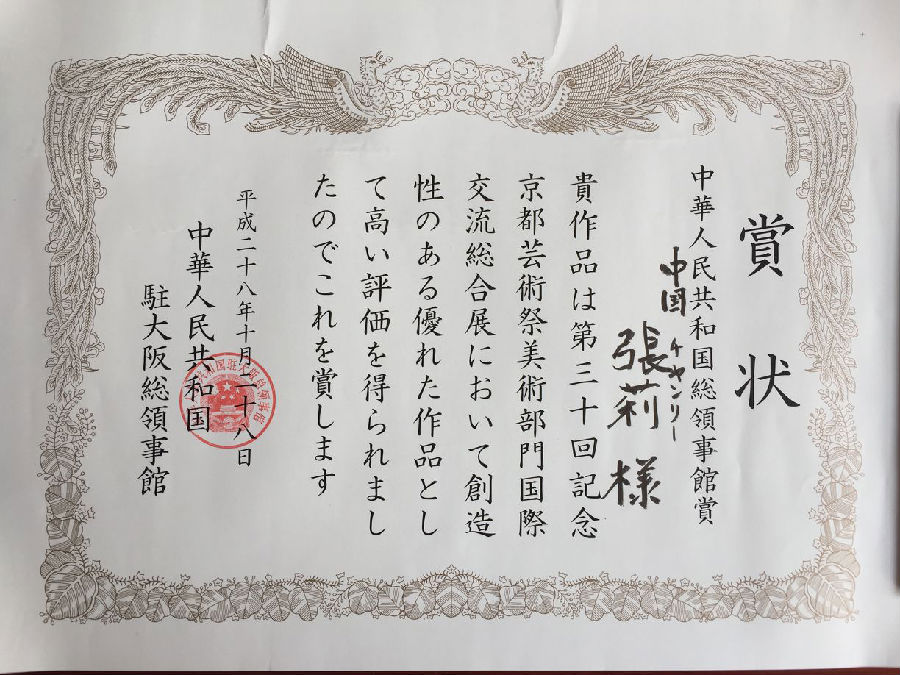 賞状
中華人民共和国総領事館賞
中国
チャンリー
張莉様
貴作品は第三十回記念
京都芸術祭美術部門国際
交流総合展において創造
性のある優れた作品とし
て高い評価を得られまし
たのでこれを賞します
平成二十八年十月二十八日
中華人民共和国
駐大阪総領事館